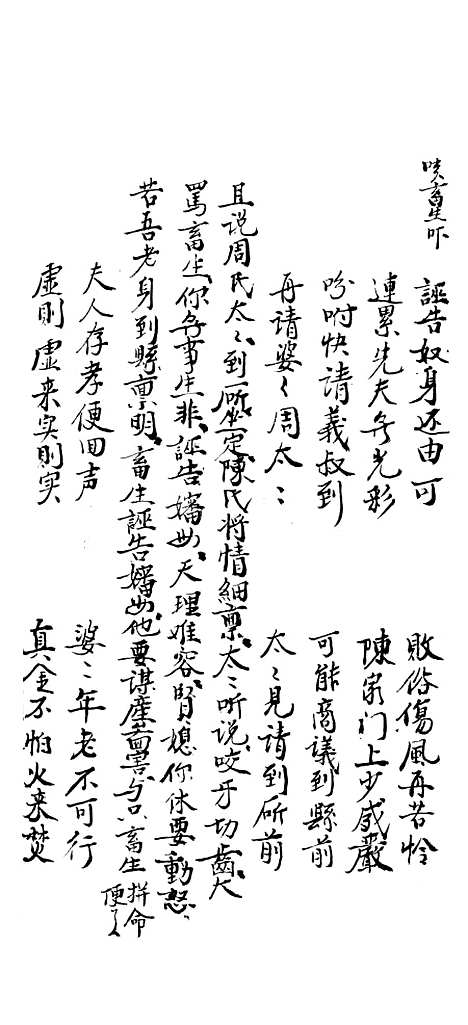 唉畜生吓
誣告奴身还由可　敗俗傷風再若怜
連累先夫無光彩　陳家门上少威嚴
吩咐快請義叔到　可能商議到縣前
再请婆〻周太〻　太〻見請到厛前
且说周氏太〻到厛坐定陳氏将情細禀太〻听说咬牙切齒大
罵畜生你無事生非誣告孀㛐天理难容賢媳你休要動怒
若吾老身到縣禀明畜生誣告孀㛐他要谋產害与只畜生拼命
便了
夫人存孝便回声　婆〻年老不可行
虛則虛来实則实　真金不怕火来焚